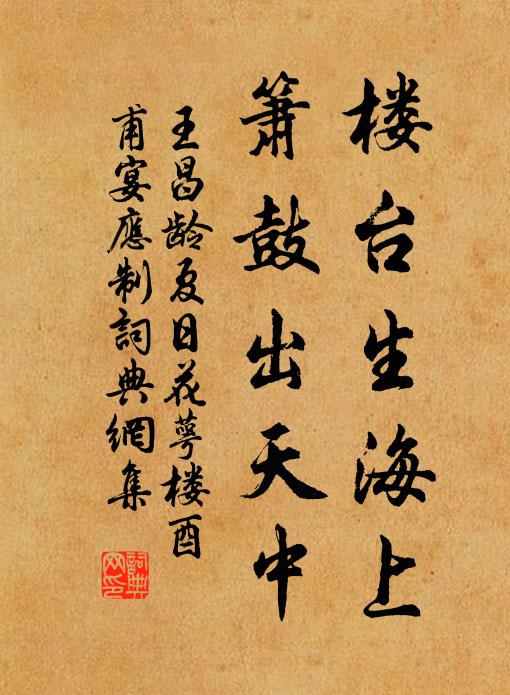 楼台生海上
箫鼓出天中
王昌龄夏日花萼楼酉
甫宴應制詞典網集
詞典
网印